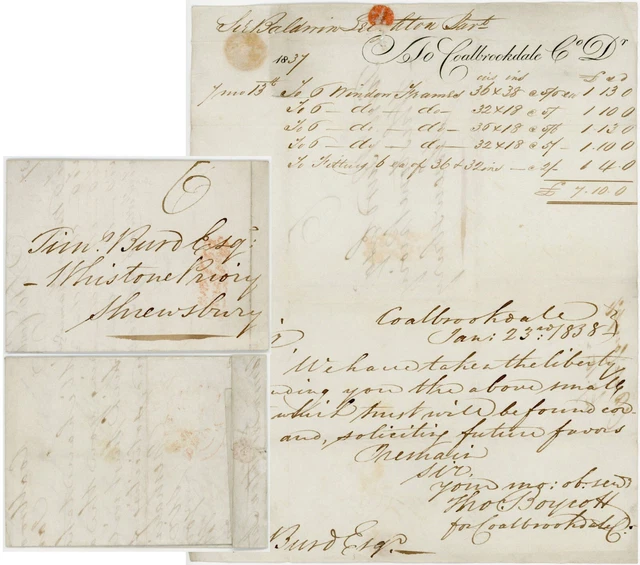 Sir Baldwin Leighton Bart
To Coalbrookdale Co Dr
1837 ins ins £ s d
7 mo 13th To 6 Window Frames 36 x 38 @ 5/6 ea 1 13 0
To 6 - do - do - 32 x 18 @ 5/ 1 10 0
To 6 - do - do - 36 x 18 @ 5/6 1 13 0
To 6 - do - do - 32 x 18 @ 5/ - 1 10 0
To Fitting 6 ea of 36 & 32 ins - @ 2/ 1 4 0
£ 7.10.0
Coalbrookdale
Jan: 23rd: 1838
We have taken the liberty
nding you the above small
which trust will be found cor
and, soliciting future favors
remain
Sir.
Your mo: ob: serv
Tho Boycott
for Coalbrookdale Co.
Burd Esqr
6
Timy Burd Esqr:
- Whistone Priory
Shrewsbury